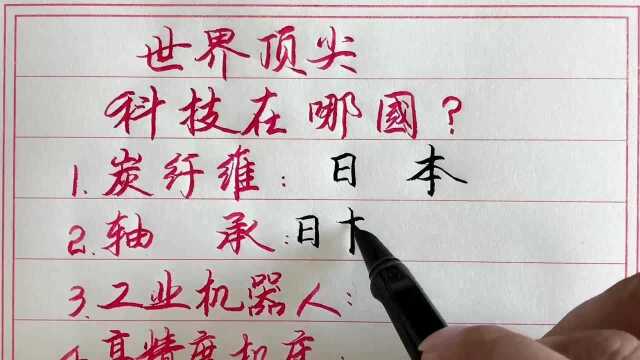 世界顶尖
科技在哪國?
1.炭纤维:日本
2.轴承:日
3.工业机器人:
4.高精度机